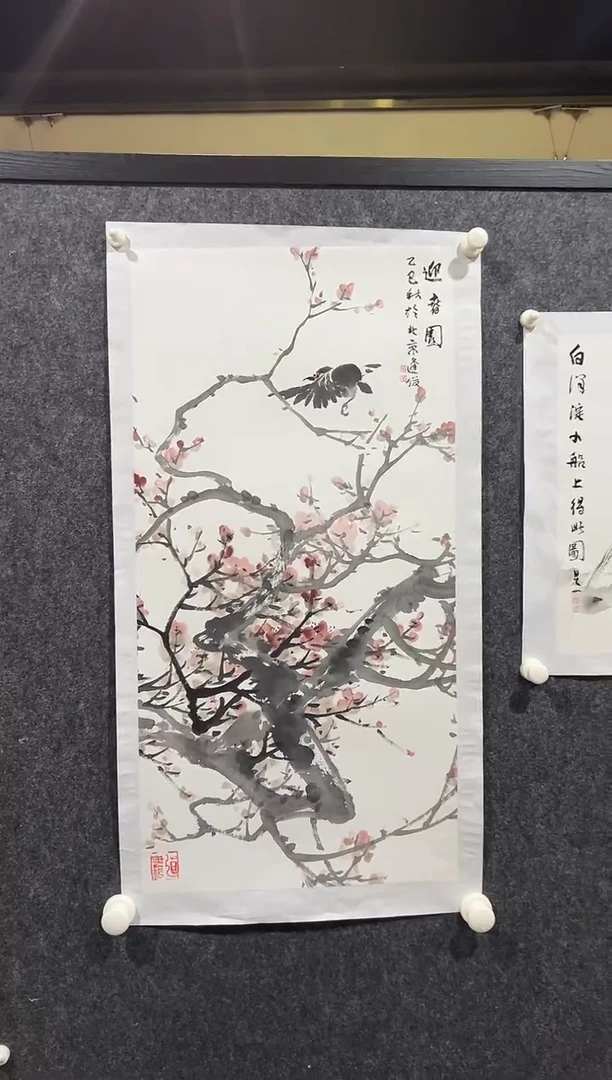 迎春图
乙巳秋於北京逢俊
白洋淀小船上得此图